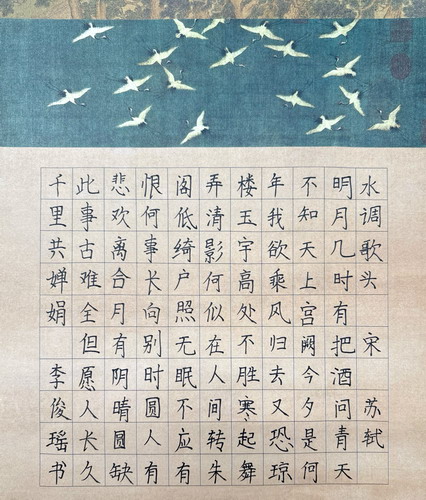 水调歌头 宋 苏轼
明月几时有把酒问青天
不知天上宫阙今夕是何
年我欲乘风归去又恐琼
楼玉宇高处不胜寒起舞
弄清影何似在人间转朱
阁低绮户照无眠不应有
恨何事长向别时圆人有
悲欢离合月有阴晴圆缺
此事古难全但愿人长久
千里共婵娟 李俊瑶书